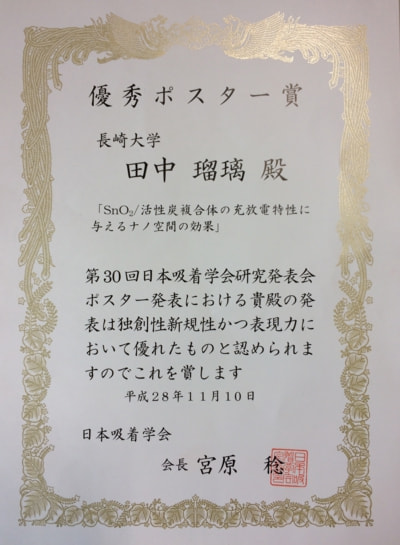 優秀ポスター賞
長崎大学
田中 瑠璃 殿
「SnO₂/活性炭複合体の充放電特性に
与えるナノ空間の効果」
第30回日本吸着学会研究発表会
ポスター発表における貴殿の発
表は独創性新規性かつ表現力に
おいて優れたものと認められま
すのでこれを賞します
平成28年11月10日
日本吸着学会
会長 宮原 稔